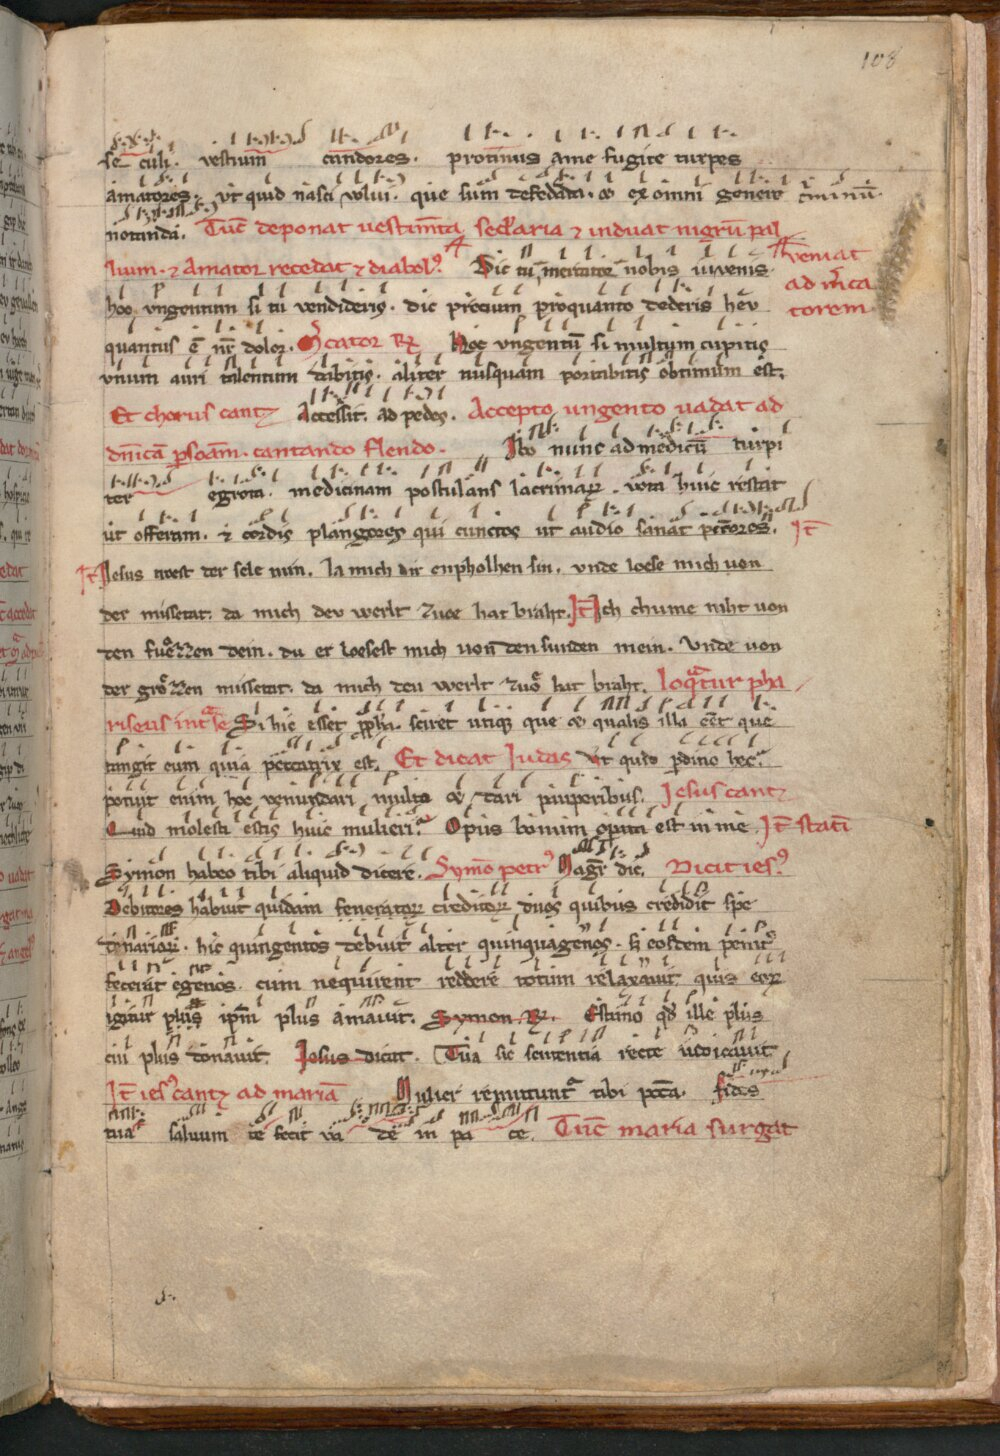 108
se culi. vestium candores. protinus a me fugite turpes
amatores. vt quid nasci volui. que sum defedata. & ex omni genere c̄minū
notanda. Tūc deponat vestim̄ta sec̄laria ⁊ induat nigrū pal
lium. ⁊ Amator recedat ⁊ diabol⁹. Dic tu mercator nobis iuvenis veniat
hoc vngentum si tu vendideris. dic precium pro quanto dederis hev ad m̄ca torem
quantus ē nr̄ dolor. M̄cator Rꝫ Hoc vngentū si multum cupitis
vnum auri talentum dabitis. aliter nusquam portabitis obtimum est.
Et chorus cantꝫ Accessit ad pedes. Accepto ungento uadat ad
dn̄icā ꝑsonam. cantando flendo. Ibo nunc ad medicū turpi
ter egrota. medicinam postulans lacrimaꝝ. vota huic restat
ut offeram. ⁊ cordis plangores qui cunctos ut audio sanat pcc̄ores. It̄
It̄ Iesus trost der sele min. la mich dir enpholhen sin. vnde loese mich von
der missetat. da mich dev werlt zuoe hat braht. It̄ Ich chume niht von
den fuͦzzen dein. du er loesest mich von den sunden mein. Vnde von
der groͤzzen missetat. da mich deu werlt zuͦ hat braht. loqᵃtur pha
riseus intᵃ se Si hic esset ꝓpha. sciret utiqꝫ que & qualis illa eēt que
tangit eum quia peccatrix est. Et dicat Iudas Vt quid ꝑditio hec
potuit enim hoc venundari multo & dari pauperibus. Jesus cantꝫ
Quid molesti estis huic mulieri. Opus bonum opata est in me. It̄ statī
Symon habeo tibi aliquid dicere. Symō petr⁹ Magr̄ dic. Dicit ies⁹
Debitores habuit quidam feneratoꝝ creditoꝝ duos quibus credidit spe
denarioꝝ. hic quingentos debuit alter quinquagenos. s̄ eosdem penit⁹
fecerat egenos. cum nequirent reddere totum relaxauit. quis eoꝝ
igitur plus ipm̄ plus amauit. Symon Rꝫ. Estimo qd̄ ille plus
cui plus donauit. Iesus dicat. Tua sic sententia recte iudicauit
It̄ ies⁹ cantꝫ ad mariā Mulier remittuntᵃ tibi pcc̄a. fides
tua saluum te fecit va de in pa ce. Tūc maria surgat